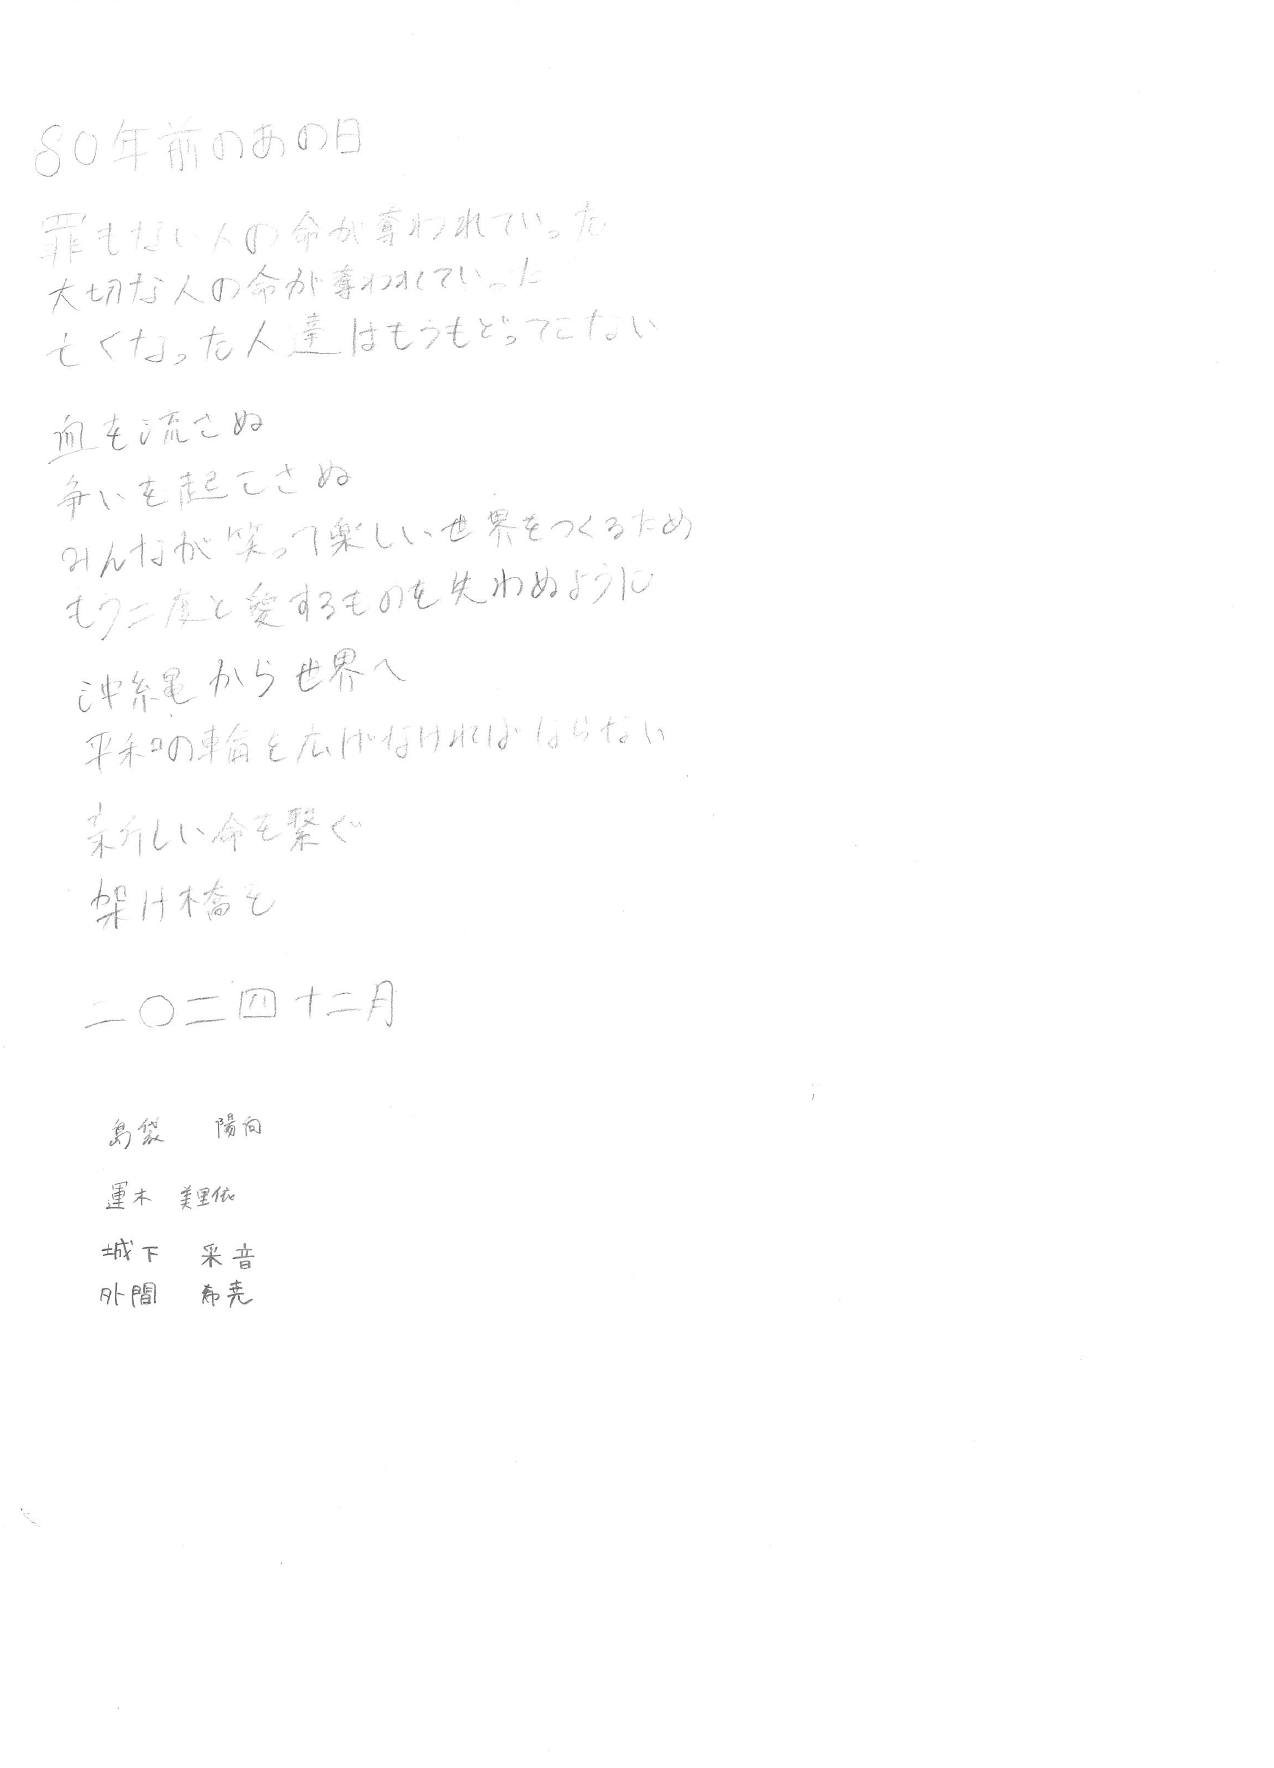 80年前のあの日
罪もない人の命が奪われていった
大切な人の命が奪われていった
亡くなった人達はもうもどってこない
血を流さぬ
争いを起こさぬ
みんなが笑って楽しい世界をつくるため
もう二度と愛するものを失わぬように
沖縄から世界へ
平和の輪を広げなければならない
新しい命を繋ぐ
架け橋を
二〇二四 十二月
島袋 陽向
運木 美里依
城下 采音
外間 希尭